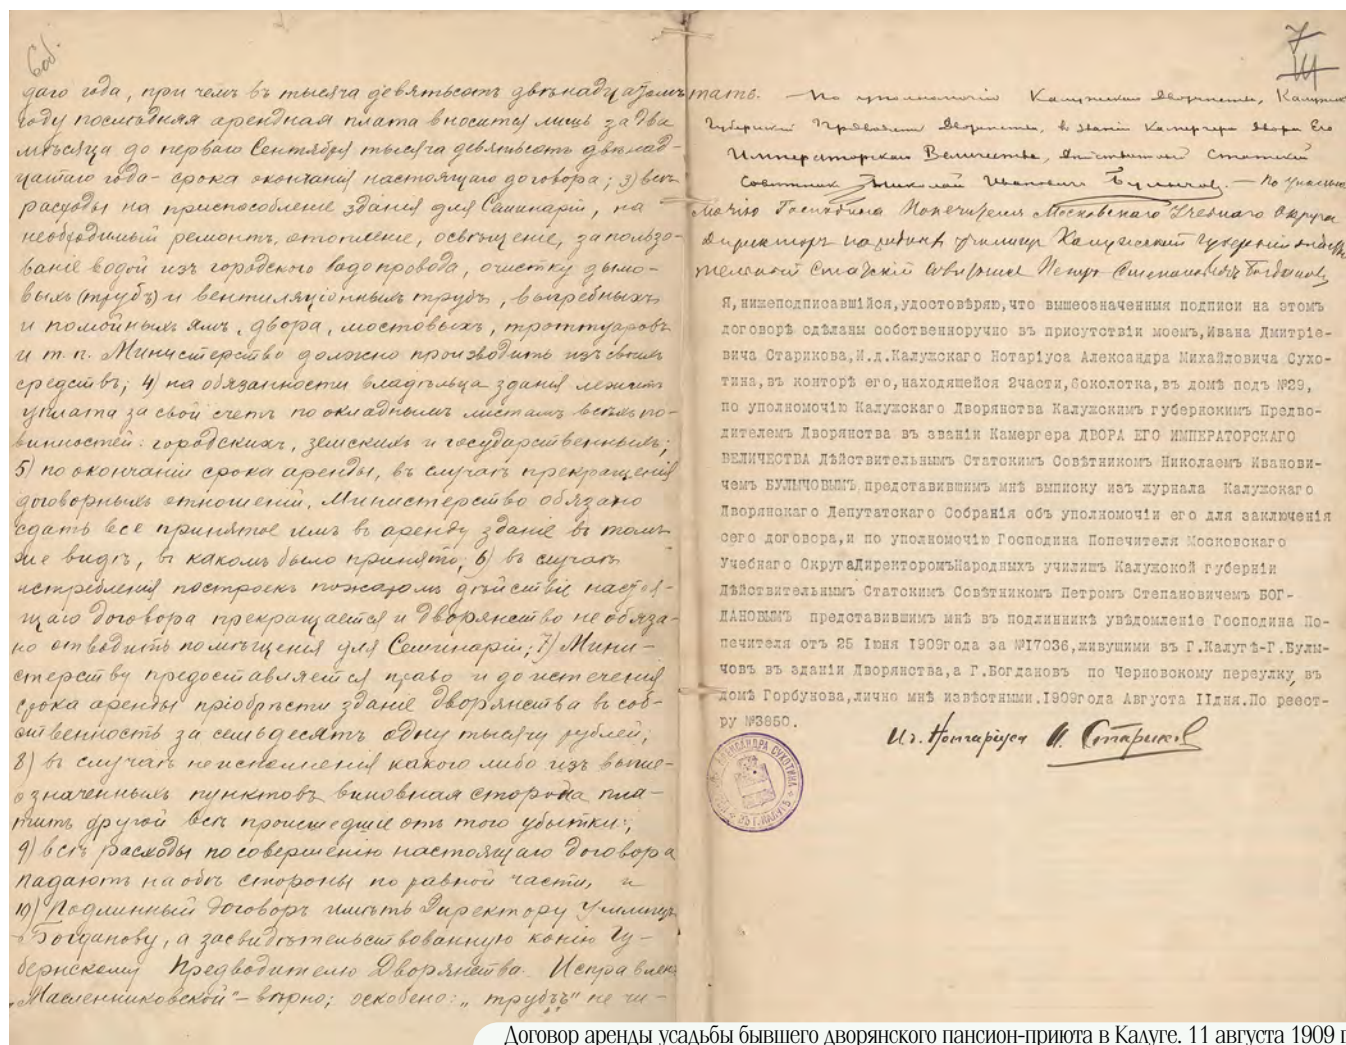 6 об.
даго года, при чемъ въ тысяча девятьсотъ двѣнадцатомъ
году послѣдняя арендная плата вносится лишь за два
мѣсяца до перваго Сентября тысяча девятьсотъ двѣнад-
цатаго года - срока окончанія настоящаго договора; 3) всѣ
расходы на приспособленіе зданія для Семинаріи, на
необходимый ремонтъ, отопленіе, освѣщеніе, за пользо-
ваніе водой изъ городского водопровода, очистку дымо-
выхъ (трубъ) и вентиляціонныхъ трубъ, выгребныхъ
и помойныхъ ямъ, двора, мостовыхъ, троттуаровъ
и т. п. Министерство должно производить изъ своихъ
средствъ; 4) на обязанности владѣльца зданія лежитъ
уплата за свой счетъ по окладнымъ листамъ всѣхъ по-
винностей: городскихъ, земскихъ и государственныхъ;
5) по окончаніи срока аренды, въ случаѣ прекращенія
договорныхъ отношеній, Министерство обязано
сдать все принятое имъ въ аренду зданіе въ томъ
же видѣ, въ какомъ было принято; 6) въ случаѣ
истребленія построекъ пожаромъ дѣйствіе настоя-
щаго договора прекращается и Дворянство не обяза-
но отводить помѣщенія для Семинаріи; 7) Мини-
стерству предоставляется право и до истеченія
срока аренды пріобрѣсти зданіе Дворянства въ соб-
ственность за семьдесятъ одну тысячу рублей;
8) въ случаѣ неисполненія какого либо изъ выше-
означенныхъ пунктовъ виновная сторона пла-
титъ другой всѣ происшедшіе отъ того убытки;
9) всѣ расходы по совершенію настоящаго договора
падаютъ на обѣ стороны по равной части, и
10) Подлинный договоръ имѣть Директору Училищъ
Богданову, а засвидѣтельствованную копію Гу-
бернскому Предводителю Дворянства. Исправлен.
"Масленниковской" - вѣрно; оскоблено: "трубъ" не чи-
7
тать. — По уполномочію Калужскаго Дворянства, Калужскій
Губернскій Предводитель Дворянства, въ званіи Камергера Двора Его
Императорскаго Величества, Дѣйствительный Статскій
Совѣтникъ Николай Ивановичъ Булычовъ. — По уполно-
мочію Господина Попечителя Московскаго Учебнаго Округа
Директоръ народныхъ училищъ Калужской губерніи дѣйстви-
тельный Статскій Совѣтникъ Петръ Степановичъ Богдановъ
Я, нижеподписавшійся, удостовѣряю, что вышеозначенныя подписи на этомъ
договорѣ сдѣланы собственноручно въ присутствіи моемъ, Ивана Дмитріе-
вича Старикова, И.д. Калужскаго Нотаріуса Александра Михайловича Сухо-
тина, въ конторѣ его, находящейся 2части, 6околотка, въ домѣ подъ №29,
по уполномочію Калужскаго Дворянства Калужскимъ губернскимъ Предво-
дителемъ Дворянства въ званіи Камергера ДВОРА ЕГО ИМПЕРАТОРСКАГО
ВЕЛИЧЕСТВА Дѣйствительнымъ Статскимъ Совѣтникомъ Николаемъ Иванови-
чемъ БУЛЫЧОВЫМЪ, представившимъ мнѣ выписку изъ журнала Калужскаго
Дворянскаго Депутатскаго Собранія объ уполномочіи его для заключенія
сего договора, и по уполномочію Господина Попечителя Московскаго
Учебнаго ОкругаДиректоромъНародныхъ училищъ Калужской губерніи
Дѣйствительнымъ Статскимъ Совѣтникомъ Петромъ Степановичемъ БОГ-
ДАНОВЫМЪ представившимъ мнѣ въ подлинникѣ увѣдомленіе Господина По-
печителя отъ 25 Іюня 1909года за №17036, живущими въ Г.Калугѣ-Г.Булы-
човъ въ зданіи Дворянства, а Г.Богдановъ по Черновскому переулку, въ
домѣ Горбунова, лично мнѣ извѣстными. 1909года Августа IIдня. По реест-
ру №3850.
И.д. Нотаріуса И. Стариковъ
АЛЕКСАНДРА СУХОТИНА
ВЪ Г. КАЛУГѢ
Договор аренды усадьбы бывшего дворянского пансион-приюта в Калуге. 11 августа 1909 г